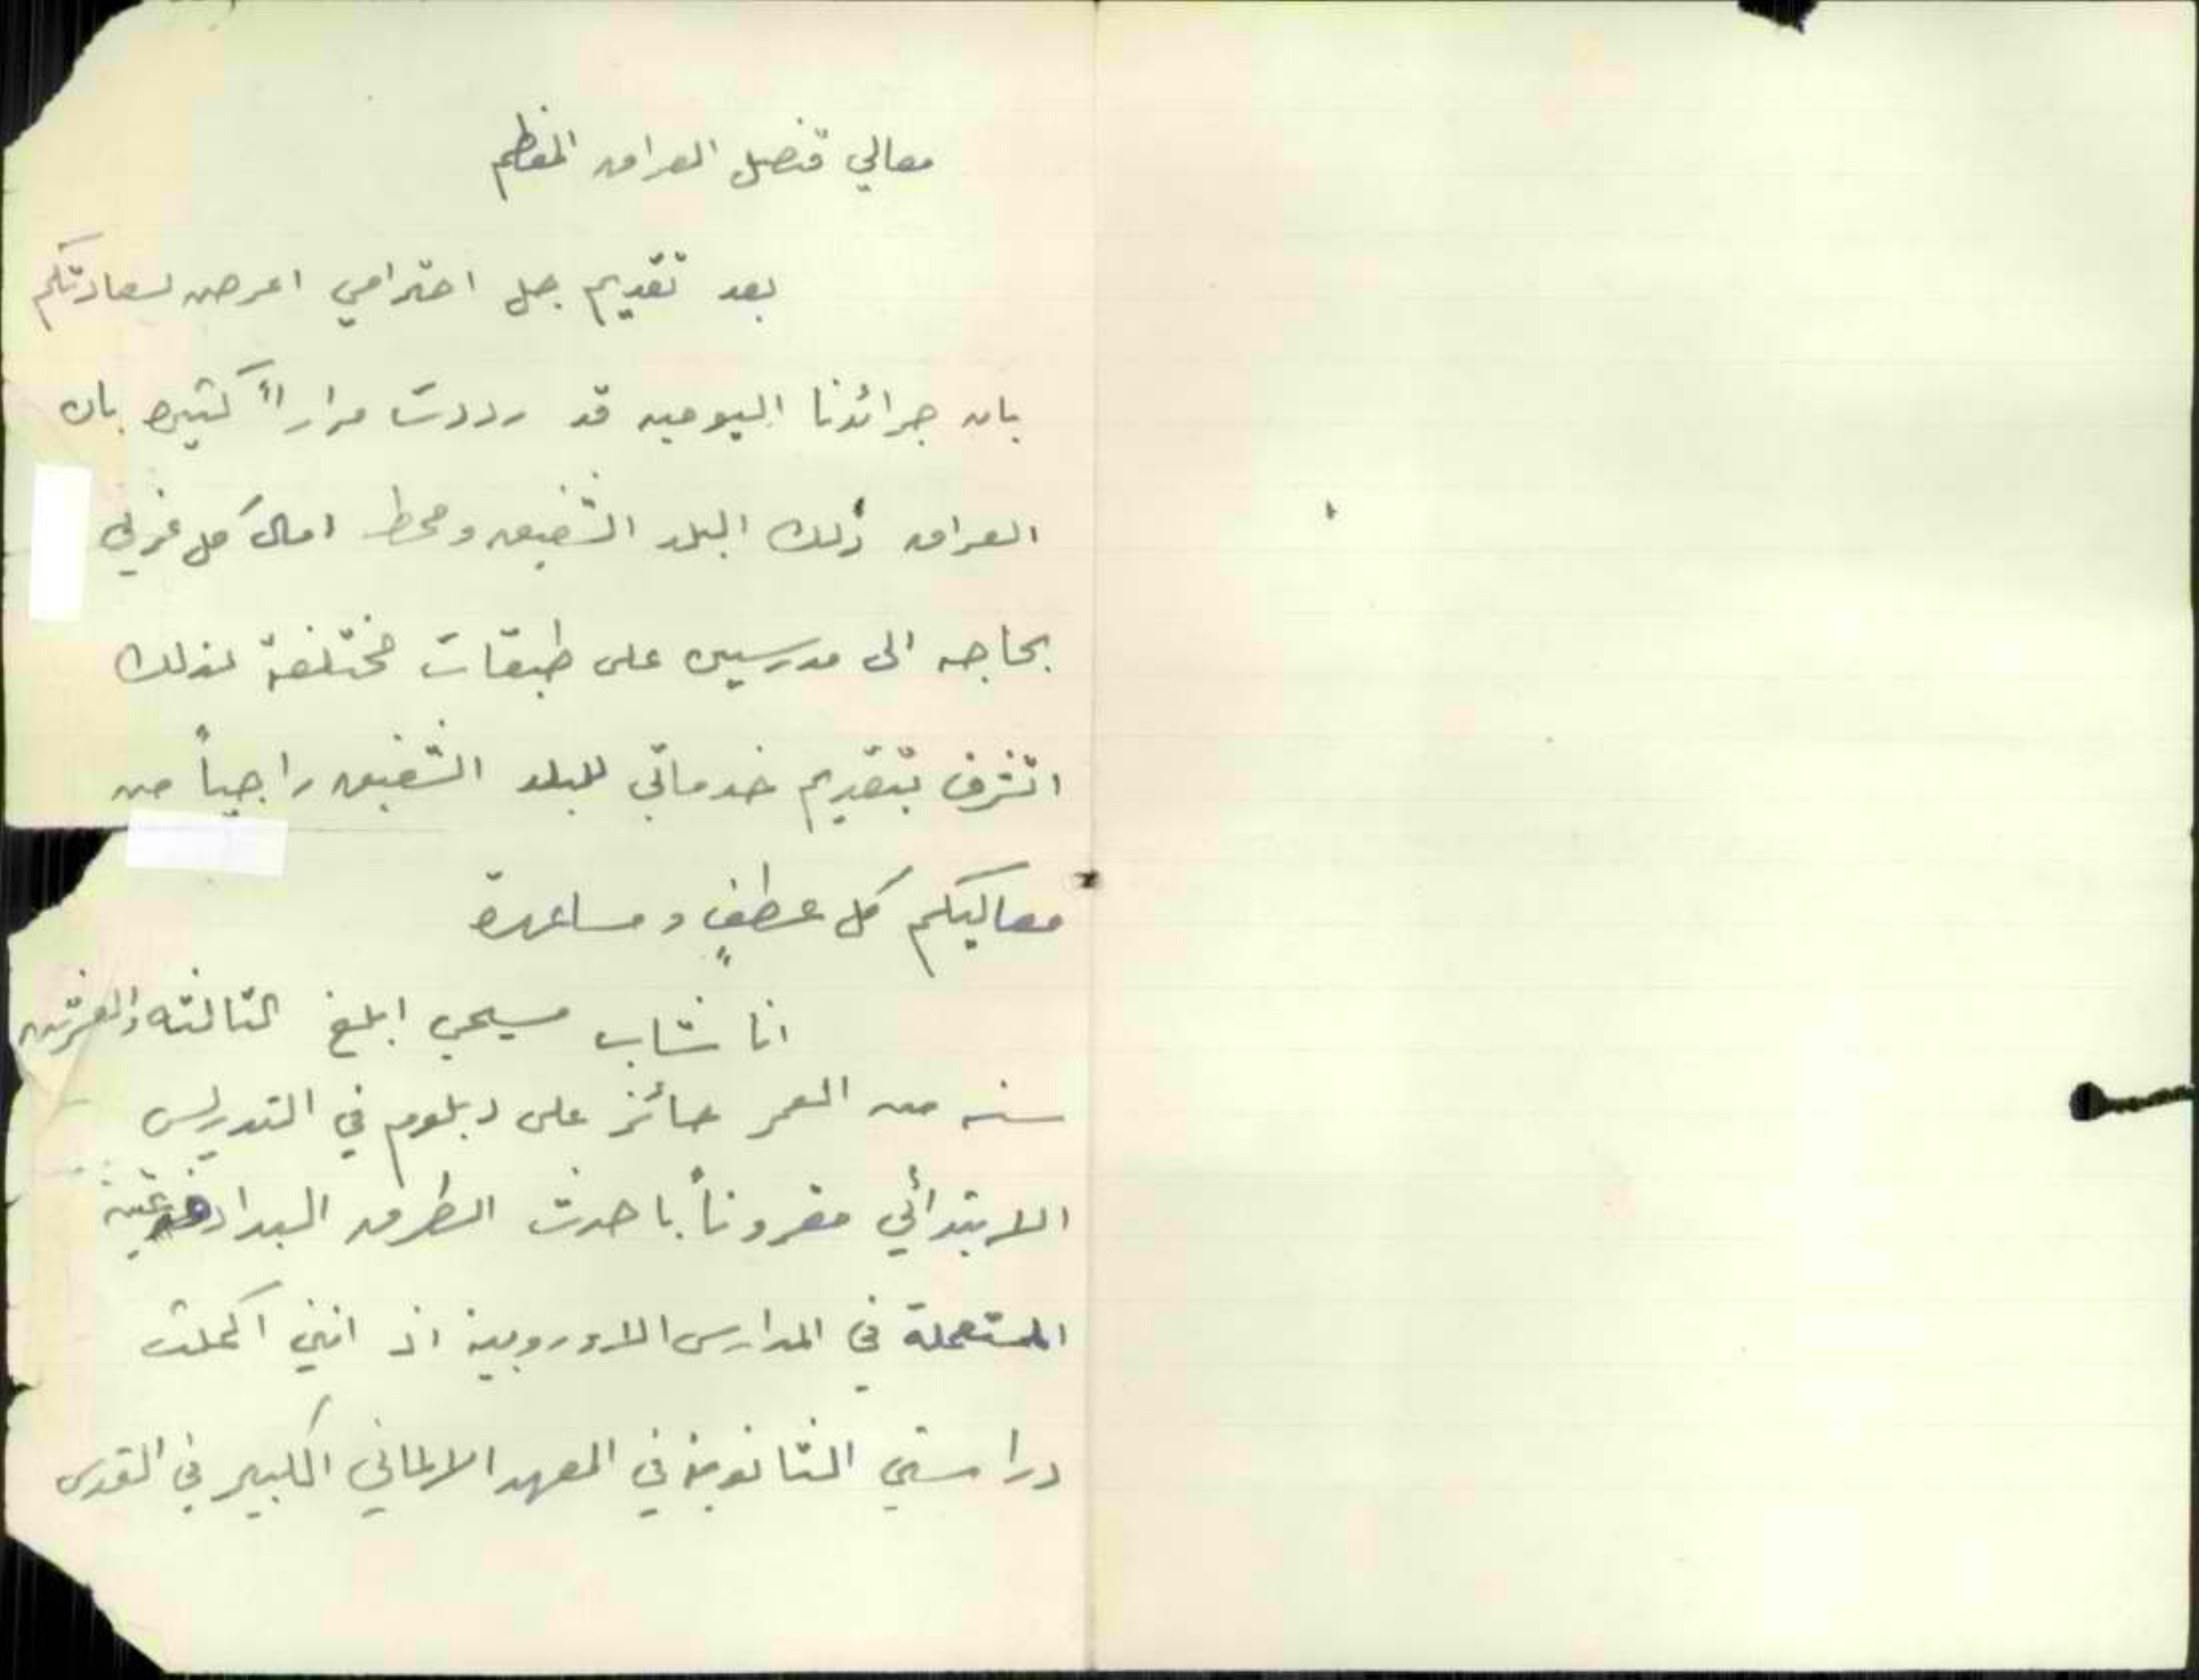 معالي قنصل العراق المفظم
بعد تقديم جل احترامي اعرض لسعادتكم
بان جرائدنا اليوميه قد رددت مراراً كثيره بان
العراق ذلك البلد الشقيق ومحط امال كل عربي
بحاجه الى مدرسين على طبقات مختلفة لذلك
اتشرف بتقديم خدماتي للبلد الشقيق راجياً من
معاليكم كل عطفٍ ومساعدة
انا شاب مسيحي ابلغ الثالثه والعشرين
سنه من العمر حائز على دبلوم في التدريس
الابتدائي مقروناً باحدث الطرق
المستعملة في المدارس الاوروبية اذ انني اكملت
دراستي الثانوية في المعهد الالماني الكبير في القدس